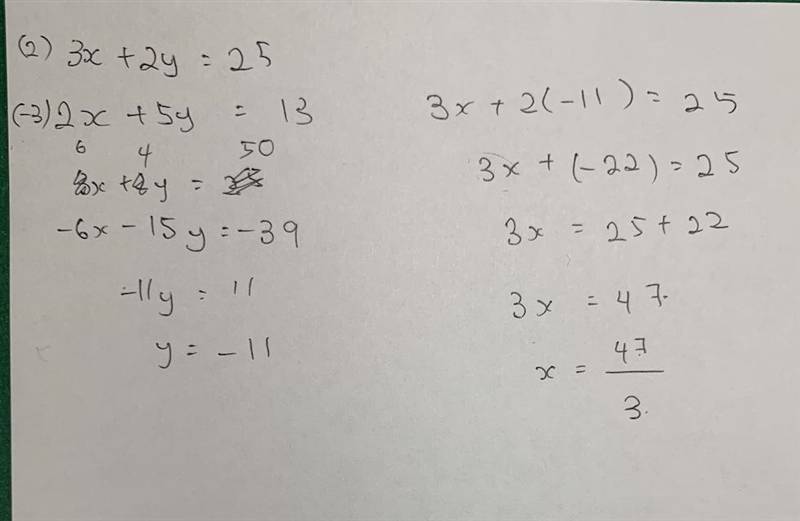 (2) 3x + 2y = 25
(-3) 2x + 5y = 13
6 4 50
x + y =
-6x - 15y = -39
-11y = 11
y = -11
3x + 2(-11) = 25
3x + (-22) = 25
3x = 25 + 22
3x = 47.
x = 47
3.